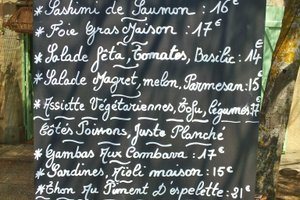 * Sashimi de Saumon : 16€
* Foie Gras Maison : 17€
* Salade Féta, Tomates, Basilic : 14€
* Salade Magret, melon, Parmesan : 15€
* Assiette Végétariennes, Tofu, légumes
Côtés Poissons, Juste Planché
* Gambas Aux Combava : 17€
* Sardines, Aioli maison : 15€
* Thon Au Piment D'espelette : 21€